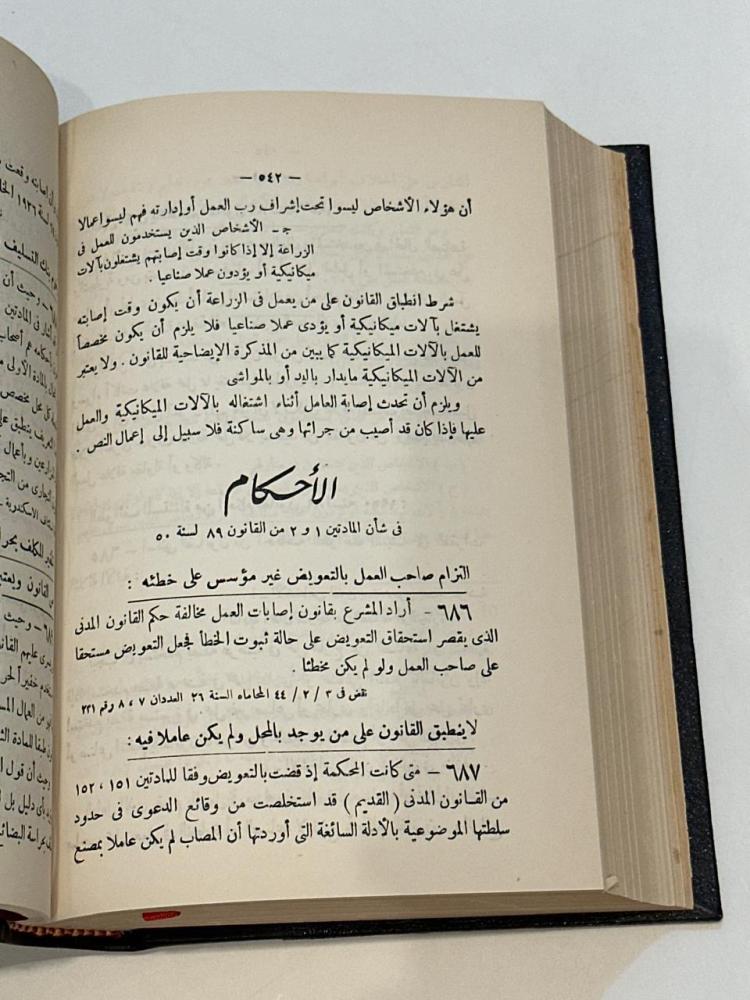 — ٥٤٢ —
أن هؤلاء الأشخاص ليسوا تحت إشراف رب العمل أو إدارته فهم ليسوا عمالا
جـ - الأشخاص الذين يستخدمون للعمل فى
الزراعة إلا إذا كانوا وقت إصابتهم يشتغلون بآلات
ميكانيكية أو يؤدون عملا صناعيا .
شرط انطباق القانون على من يعمل فى الزراعة أن يكون وقت إصابته
يشتغل بآلات ميكانيكية أو يؤدى عملا صناعيا فلا يلزم أن يكون مخصصاً
للعمل بالآلات الميكانيكية كما يبين من المذكرة الإيضاحية للقانون . ولا يعتبر
من الآلات الميكانيكية مايدار باليد أو بالمواشى
ويلزم أن تحدث إصابة العامل أثناء اشتغاله بالآلات الميكانيكية والعمل
عليها فإذا كان قد أصيب من جرائها وهى ساكنة فلا سبيل إلى إعمال النص .
الأحكام
فى شأن المادتين ١ و ٢ من القانون ٨٩ لسنة ٥٠
التزام صاحب العمل بالتعويض غير مؤسس على خطئه :
٦٨٦ - أراد المشرع بقانون إصابات العمل مخالفة حكم القانون المدنى
الذى يقصر استحقاق التعويض على حالة ثبوت الخطأ فجعل التعويض مستحقا
على صاحب العمل ولو لم يكن مخطئا .
نقض فى ٣ / ٢ / ٤٤ المحاماه السنة ٢٦ العددان ٧ ، ٨ رقم ٢٣١
لا ينطبق القانون على من يوجد بالمحل ولم يكن عاملا فيه :
٦٨٧ - متى كانت المحكمة إذ قضت بالتعويض وفقا للمادتين ١٥١ ، ١٥٢
من القانون المدنى ( القديم ) قد استخلصت من وقائع الدعوى فى حدود
سلطتها الموضوعية بالأدلة السائغة التى أوردتها أن المصاب لم يكن عاملا بمصنع